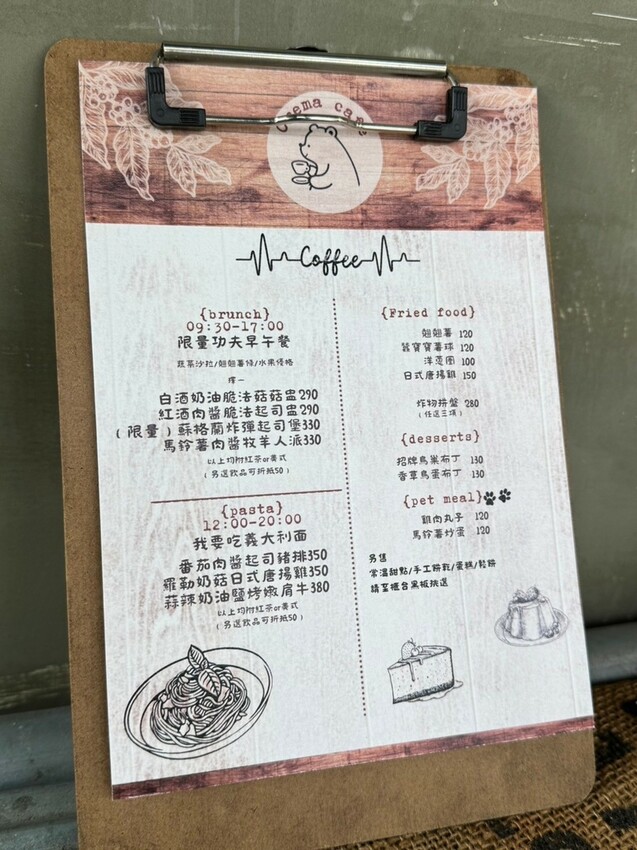 Crema café
Coffee
{brunch}
09:30-17:00
限量功夫早午餐
蔬菜沙拉/翹翹薯條/水果優格
擇一
白酒奶油脆法菇菇盅290
紅酒肉醬脆法起司盅290
(限量)蘇格蘭炸彈起司堡330
馬鈴薯肉醬牧羊人派330
以上均附紅茶or美式
(另選飲品可折抵50)
{pasta}
12:00-20:00
我要吃義大利面
番茄肉醬起司豬排350
羅勒奶菇日式唐揚雞350
蒜辣奶油鹽烤嫩肩牛380
以上均附紅茶or美式
(另選飲品可折抵50)
{Fried food}
翹翹薯 120
薯寶寶薯球 120
洋蔥圈 100
日式唐揚雞 150
炸物拼盤 280
(任選三項)
{desserts}
招牌鳥巢布丁 130
香草鳥蛋布丁 130
{pet meal}
雞肉丸子 120
馬鈴薯炒蛋 120
另售
常溫甜點/手工餅乾/蛋糕/鬆餅
請至櫃台黑板挑選